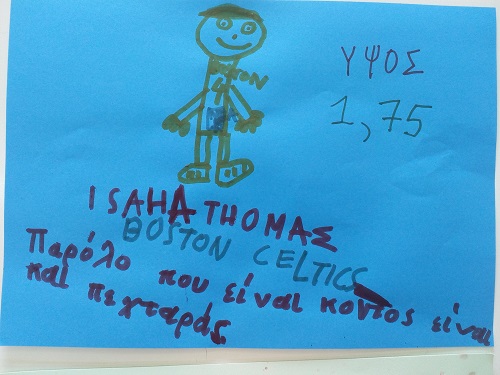 ΥΨΟΣ
1,75
BOSTON
4
ISAHA THOMAΣ
BOSTON CELTICS
Παρόλο που είναι κοντός είναι
και πεχταράς